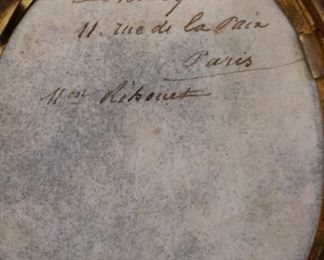 11. rue de la Paix
Paris
Mon Rihouet